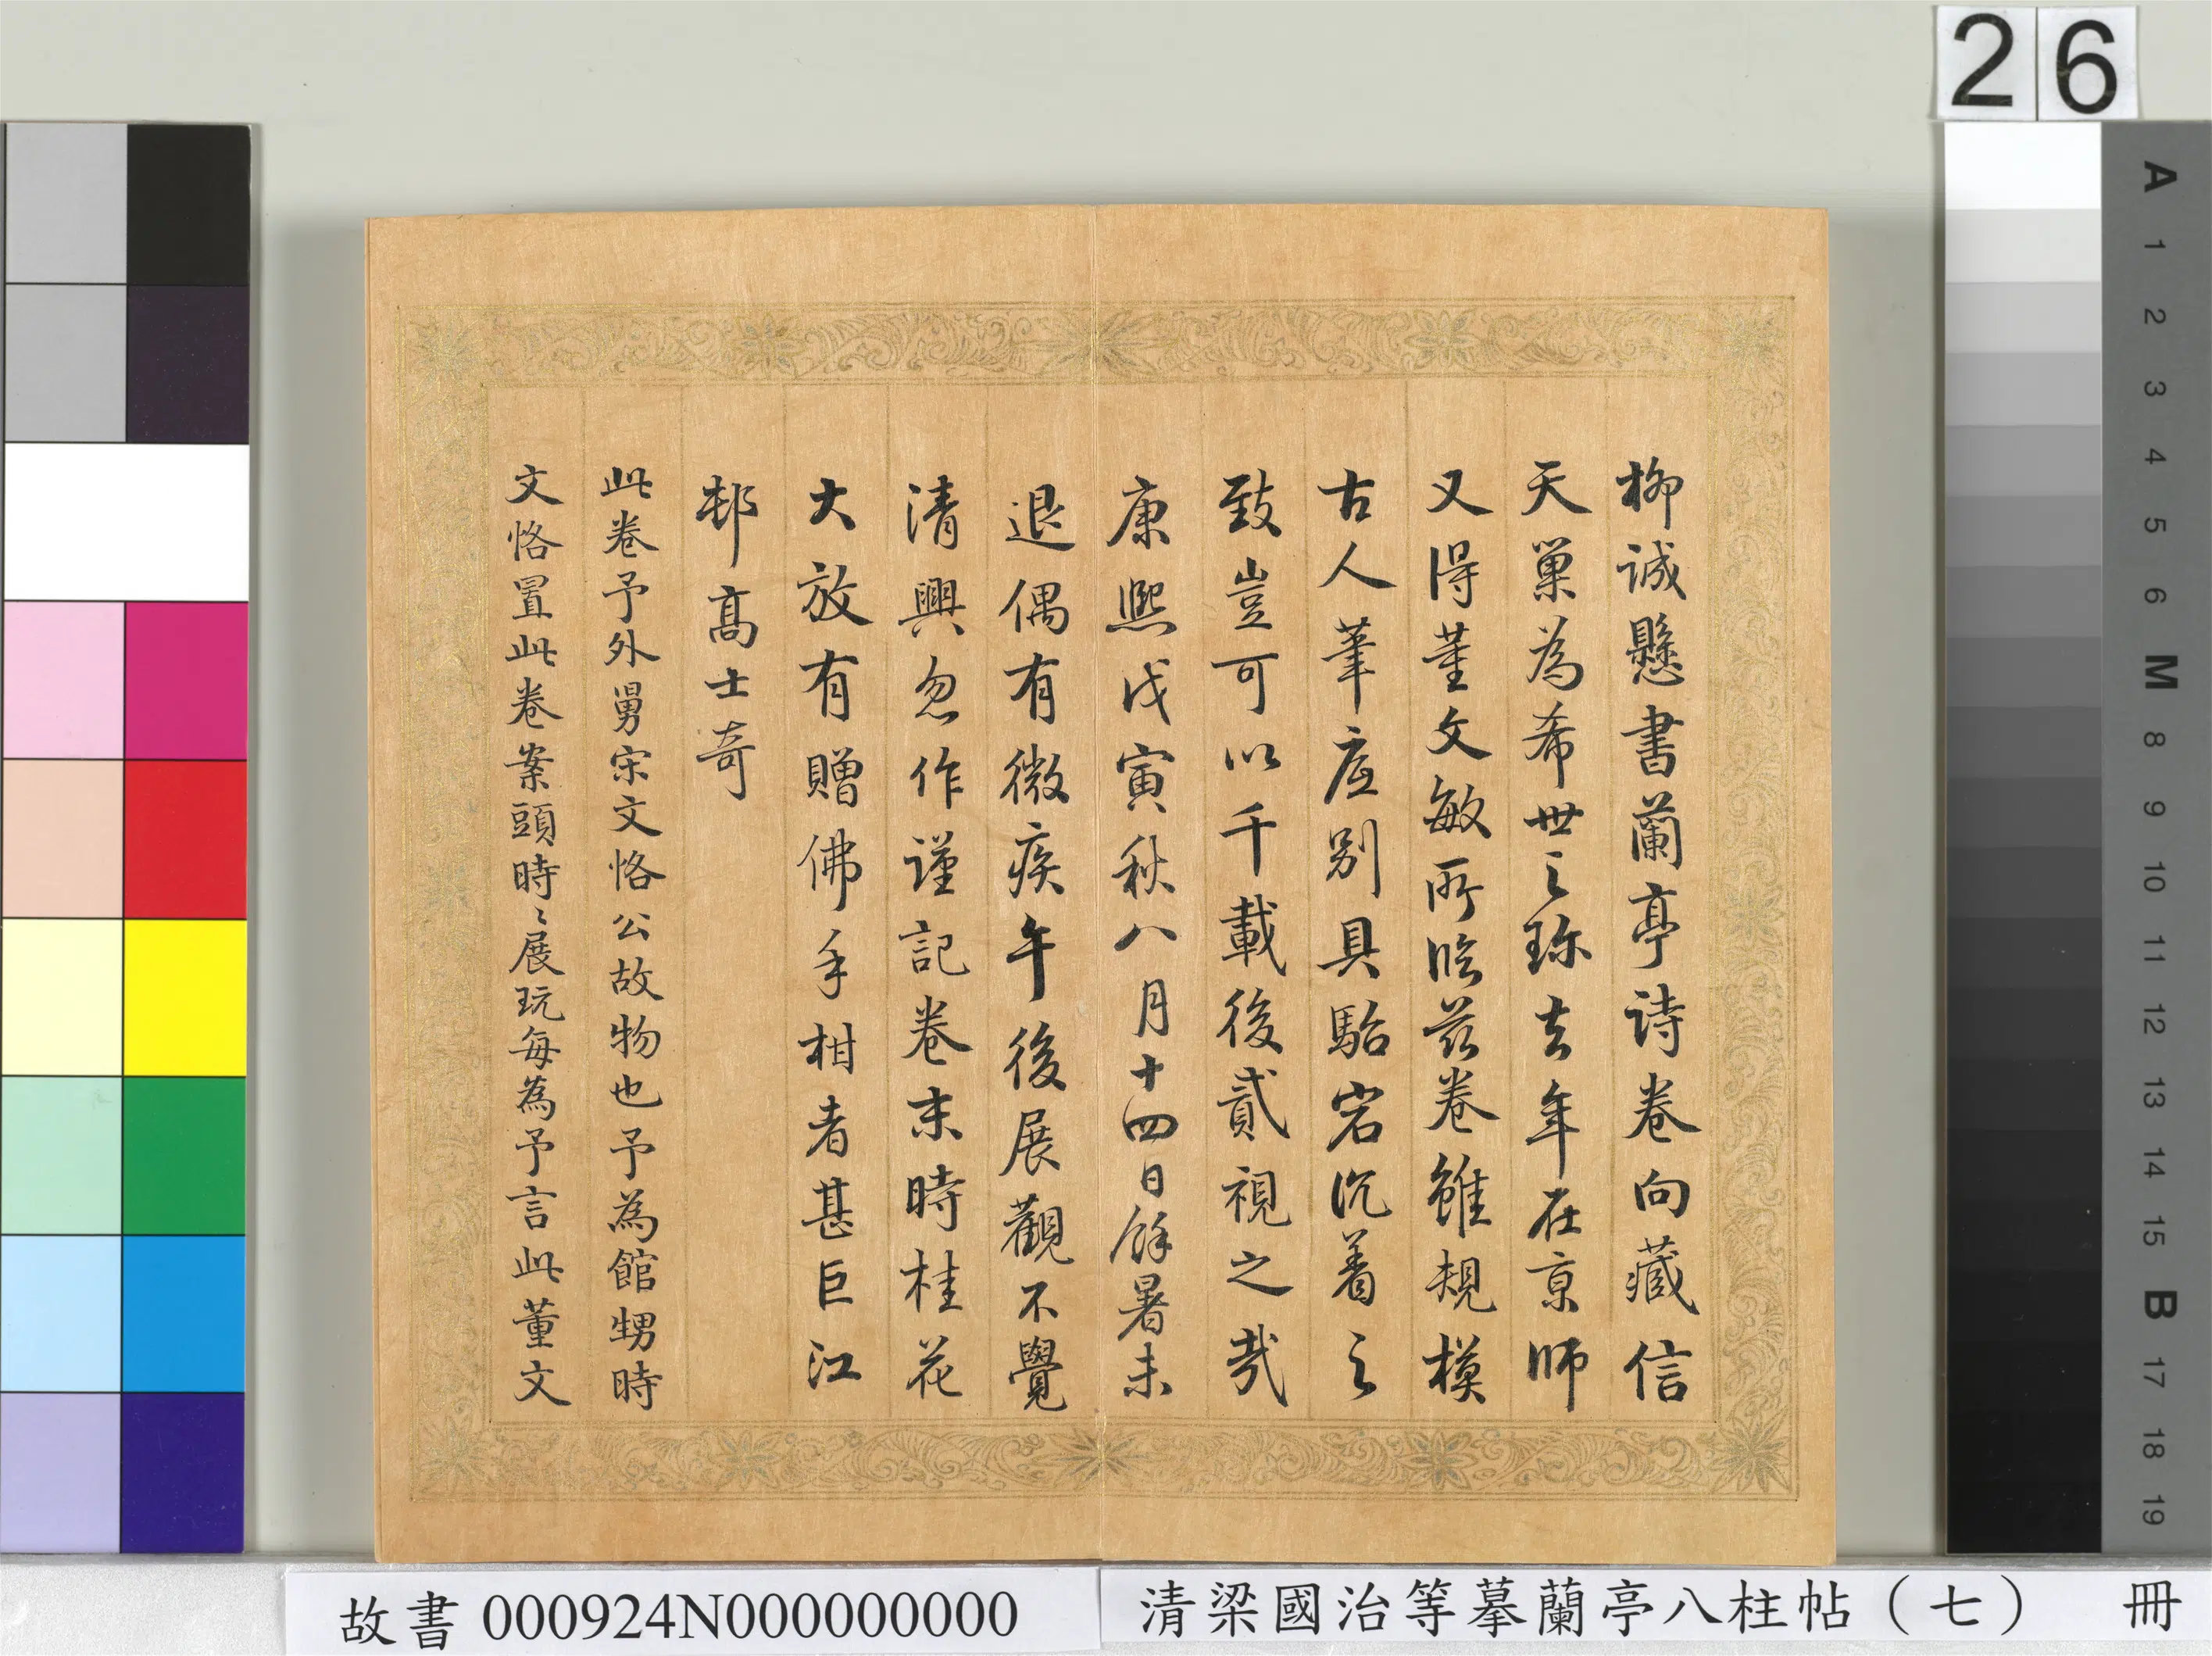 26
柳誠懸書蘭亭詩卷向藏信
天巢為希世之珎去年在京師
又得董文敏所臨茲卷雖規模
古人筆底別具駘宕沉着之
致豈可以千載後貳視之哉
康熙戊寅秋八月十四日餘暑未
退偶有微疾午後展觀不覺
清興忽作謹記卷末時桂花
大放有贈佛手柑者甚巨江
邨高士奇
此卷予外舅宋文恪公故物也予為館甥時
文恪置此卷案頭時〻展玩每為予言此董文
A
1
2
3
4
5
6
M
8
9
10
11
12
13
14
15
B
17
18
19
故書 000924N000000000
清梁國治等摹蘭亭八柱帖（七） 冊